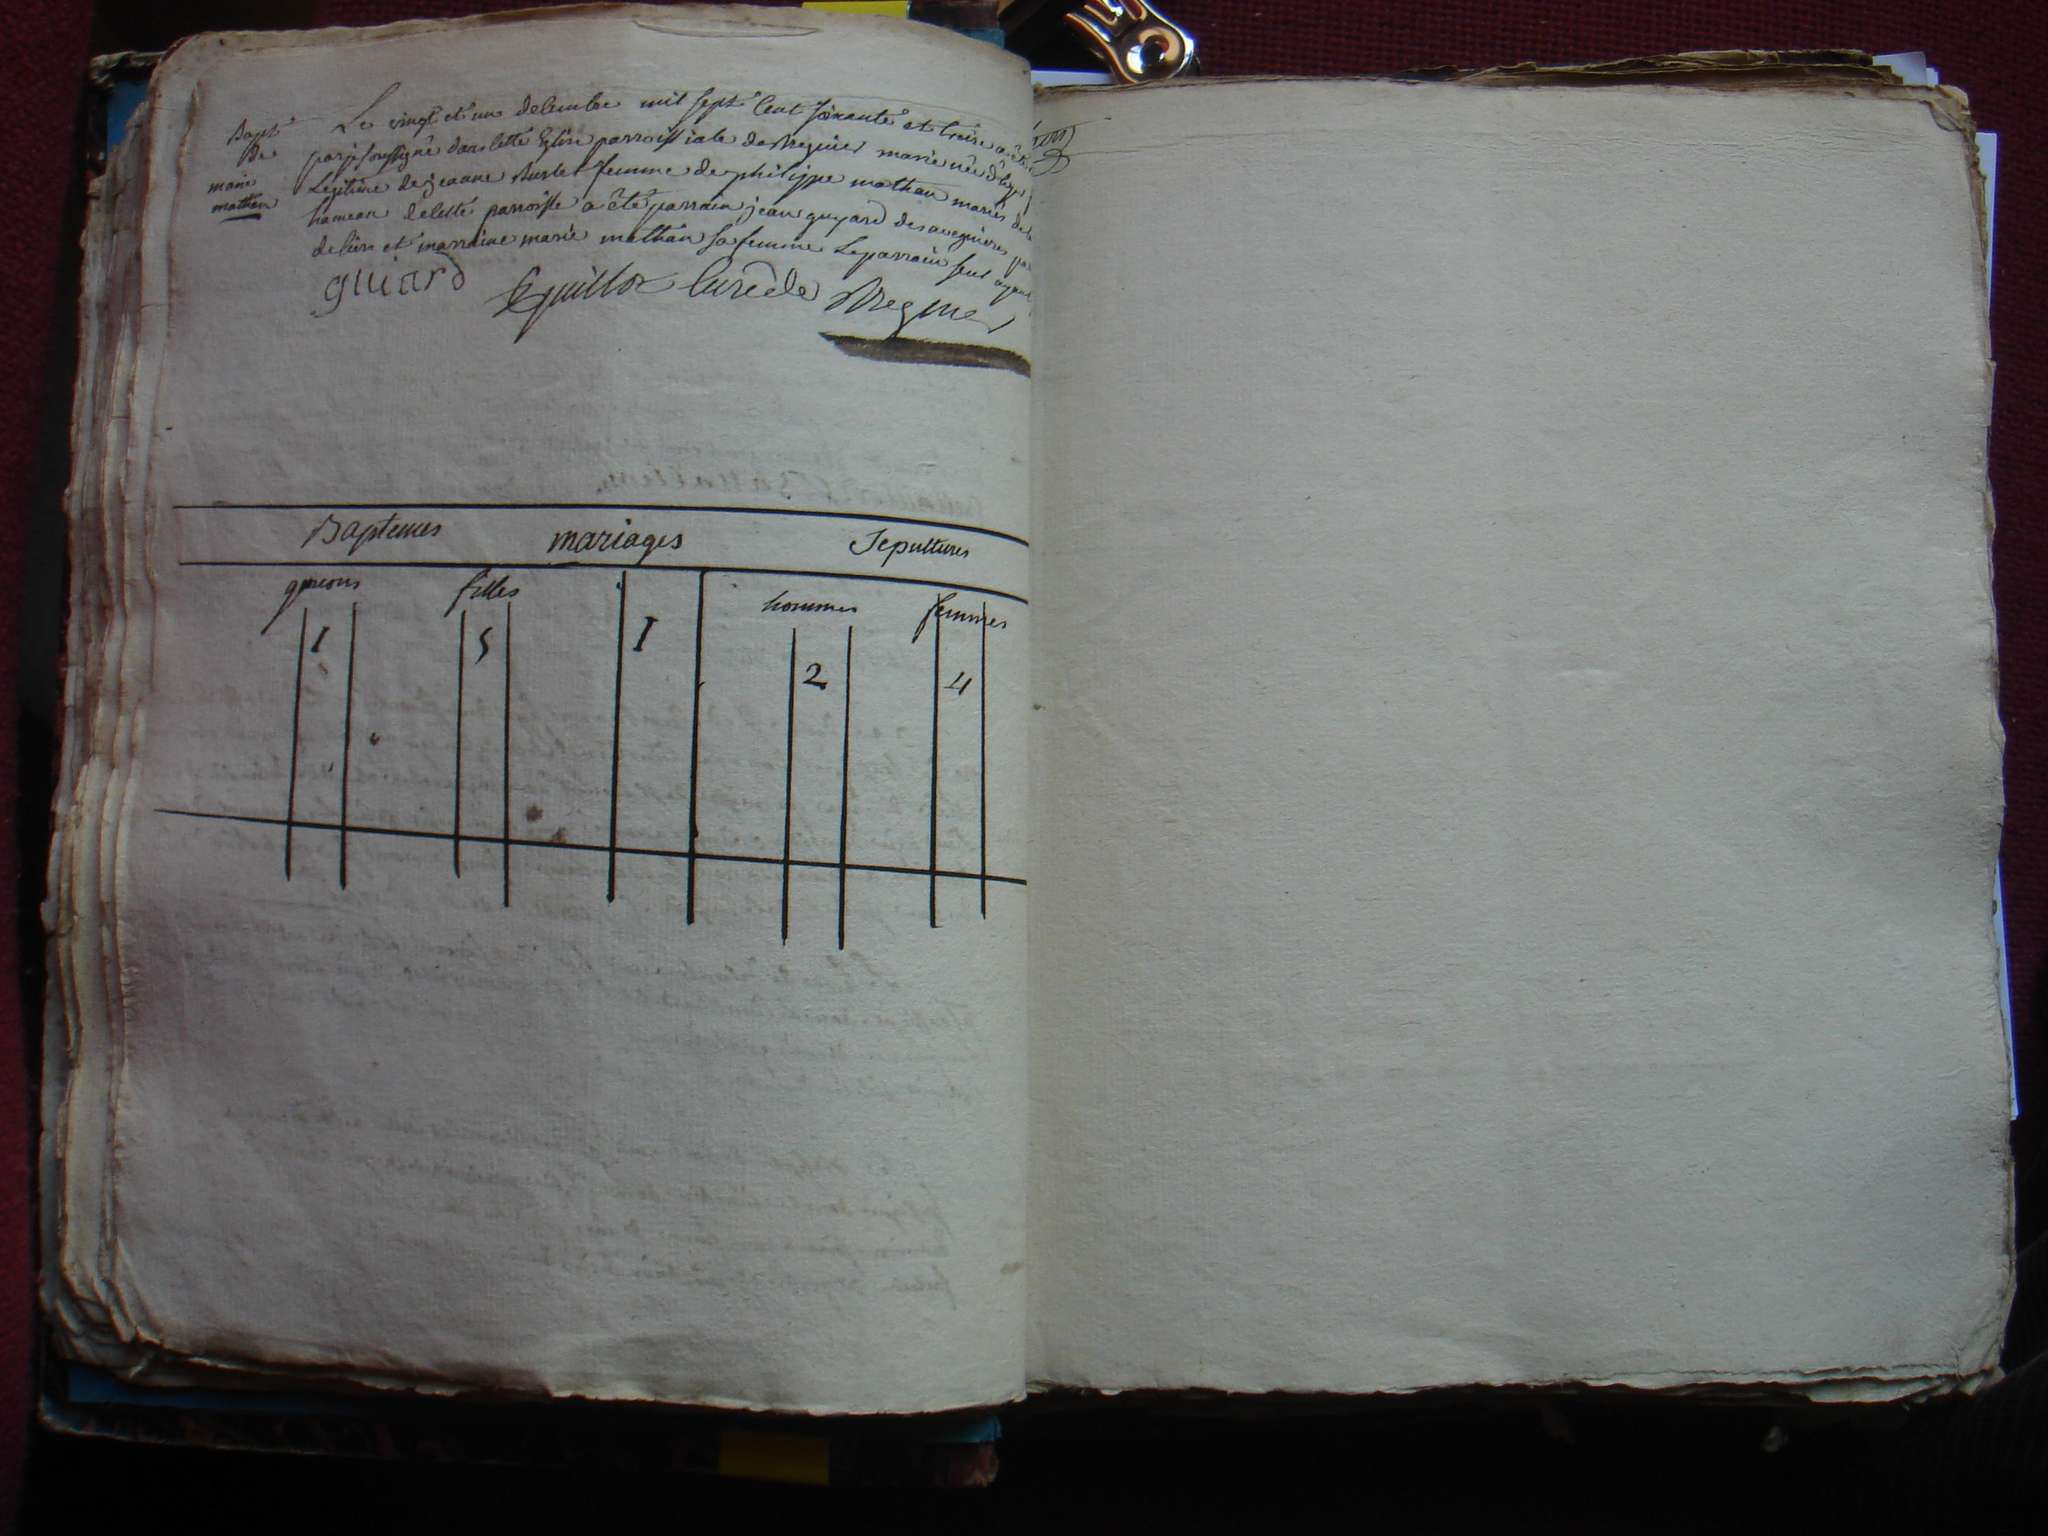 Bapt
de
marie
mathan
Le vingt et un decembre mil sept cent soixante et treize a été
par je soussigné dans cette Eglise parroissiale de Bregnier marie née
Legitime de jeanne femme de philippe mathan mariés
hameau de cette parroisse a été parrain jean guyard des avenieres
et marraine marie mathan sa femme Le parrain seul ayant
guiard curé de Bregnier
Baptemes mariages Sepultures
garcons filles hommes femmes
1 5 1
2 4